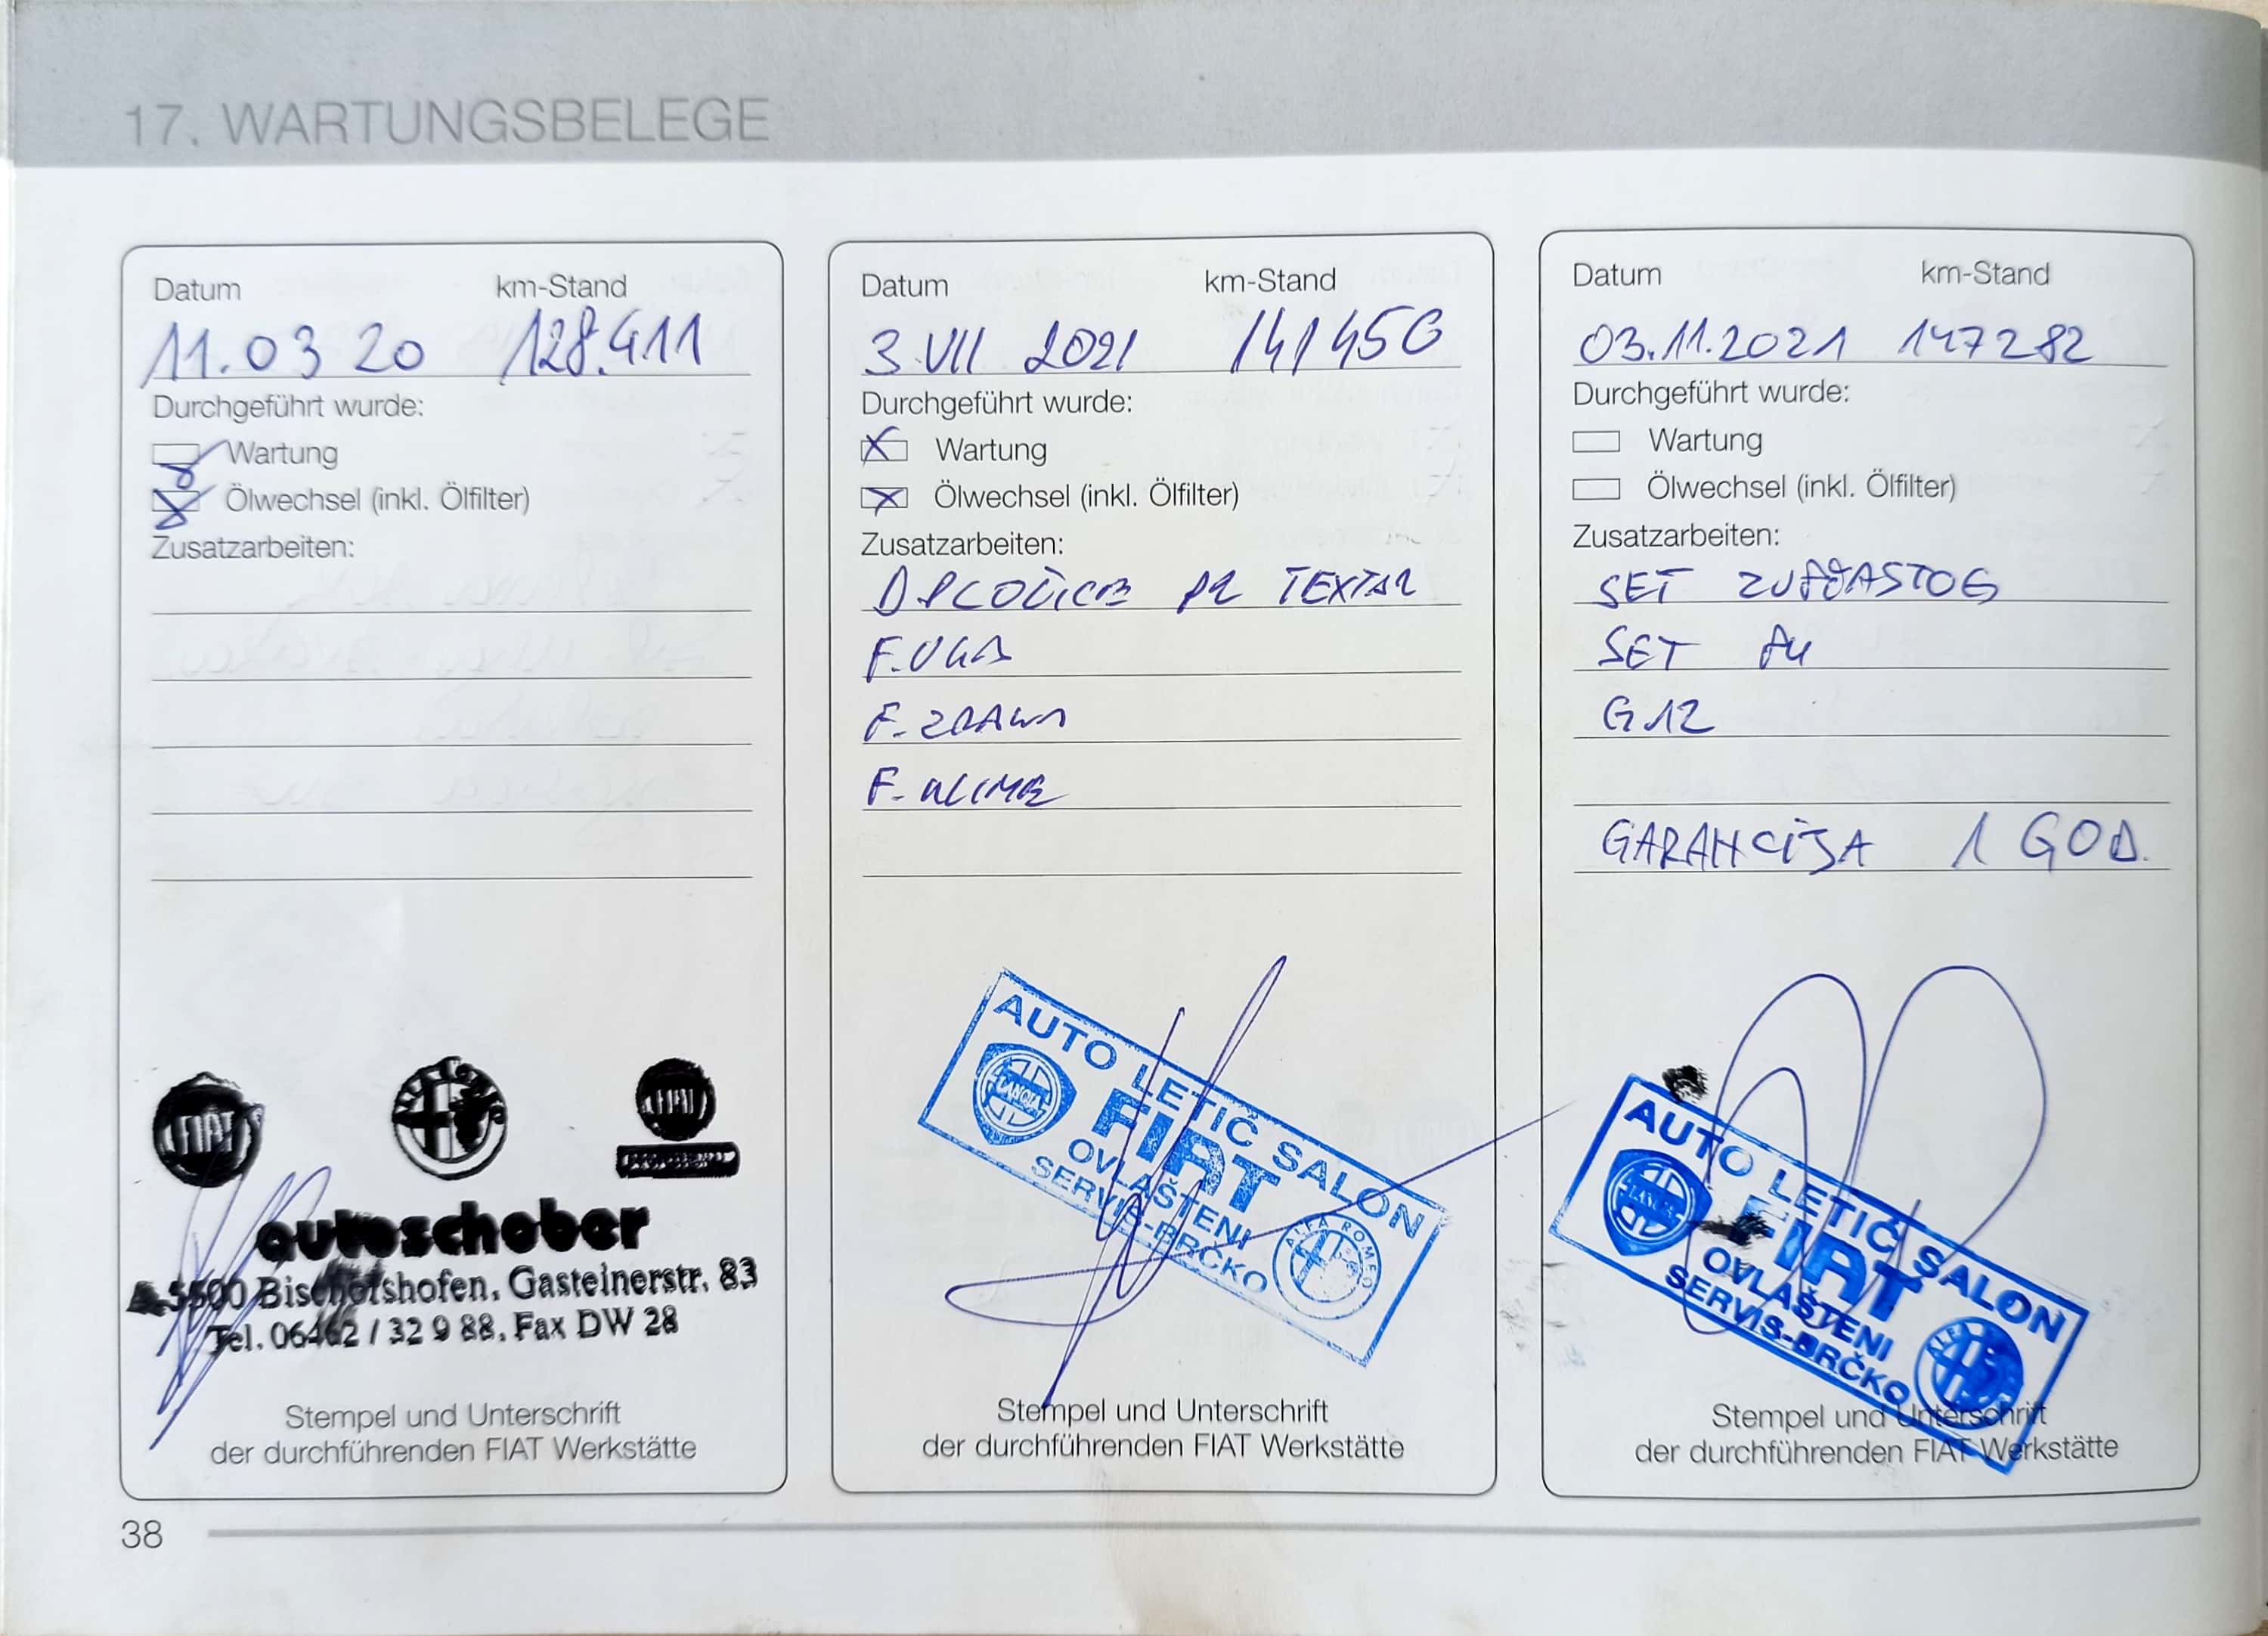 17. WARTUNGSBELEGE
Datum km-Stand
11.03 20 128.411
Durchgeführt wurde:
Wartung
Ölwechsel (inkl. Ölfilter)
Zusatzarbeiten:
FIAT
autoschober
A-5500 Bischofshofen, Gasteinerstr. 83
Tel. 06462 / 32 9 88, Fax DW 28
Stempel und Unterschrift
der durchführenden FIAT Werkstätte
Datum km-Stand
3 VII 2021 141450
Durchgeführt wurde:
Wartung
Ölwechsel (inkl. Ölfilter)
Zusatzarbeiten:
TEXTAR
F. ULJA
F. ZRAKA
F. KLIME
AUTO LETIĆ SALON
LANCIA
FIAT
OVLAŠTENI
SERVIS-BRČKO
ALFA ROMEO
Stempel und Unterschrift
der durchführenden FIAT Werkstätte
Datum km-Stand
03.11.2021 147282
Durchgeführt wurde:
Wartung
Ölwechsel (inkl. Ölfilter)
Zusatzarbeiten:
SET ZUPČASTOG
SET
G12
GARANCIJA 1 GOD.
AUTO LETIĆ SALON
LANCIA
FIAT
OVLAŠTENI
SERVIS-BRČKO
Stempel und Unterschrift
der durchführenden FIAT Werkstätte
38